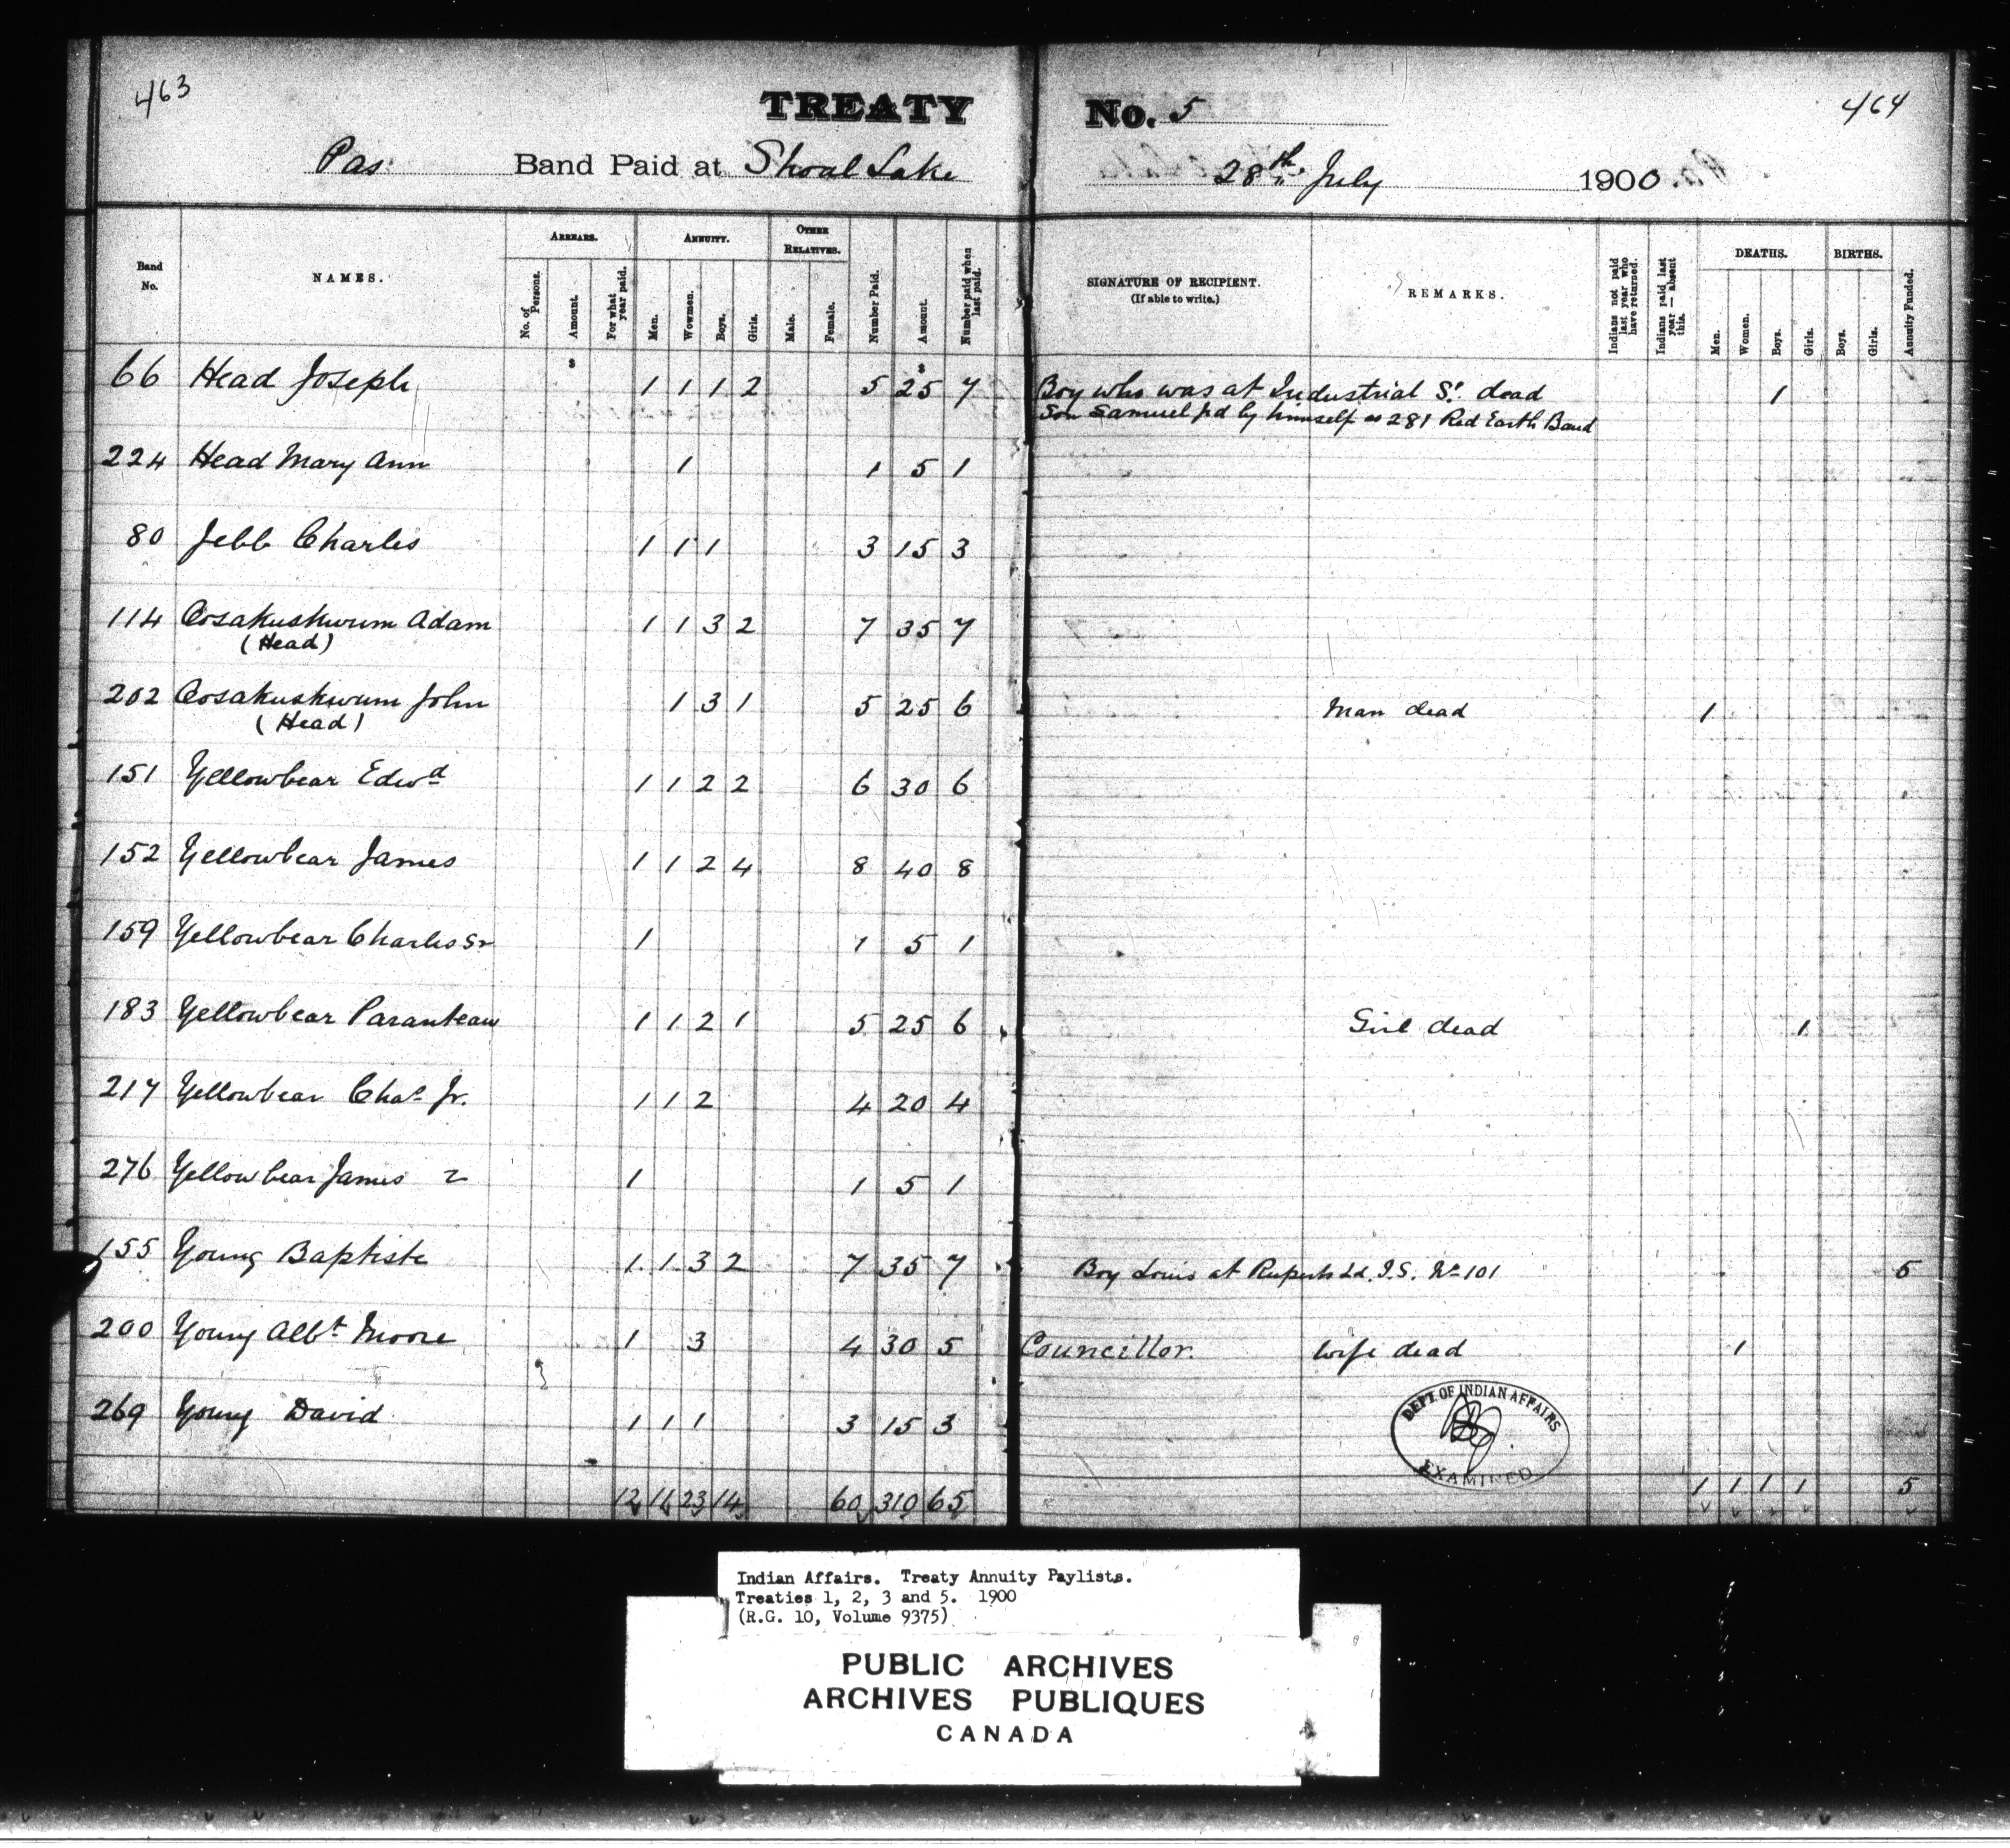 463
TREATY No. 5
464
Pas Band Paid at Shoal Lake 28th July 1900.
Band No.
NAMES.
ARREARS.
No. of Persons.
Amount.
For what year paid.
ANNUITY.
Men.
Wowmen.
Boys.
Girls.
OTHER RELATIVES.
Male.
Female.
Number Paid.
Amount.
Number paid when last paid.
SIGNATURE OF RECIPIENT.
(If able to write.)
REMARKS.
Indians not paid last year who have returned.
Indians paid last year — absent this.
DEATHS.
Men.
Women.
Boys.
Girls.
BIRTHS.
Boys.
Girls.
Annuity Funded.
$ $
66 Head Joseph 1 1 1 2 5 25 7 Boy who was at Industrial S. dead 1
Son Samuel pd by himself as 281 Red Earth Band
224 Head Mary Ann 1 1 5 1
80 Jebb Charles 1 1 1 3 15 3
114 Oosakuskwum Adam 1 1 3 2 7 35 7
(Head)
202 Oosakuskwum John 1 3 1 5 25 6 Man dead 1
(Head)
151 Yellowbear Edwd 1 1 2 2 6 30 6
152 Yellowbear James 1 1 2 4 8 40 8
159 Yellowbear Charles Sr 1 1 5 1
183 Yellowbear Paranteau 1 1 2 1 5 25 6 Girl dead 1
217 Yellowbear Chas Jr. 1 1 2 4 20 4
276 Yellowbear James 2 1 1 5 1
155 Young Baptiste 1 1 3 2 7 35 7 Boy Louis at Ruperts Ld. I.S. No 101 5
200 Young Albt Moore 1 3 4 30 5 Councillor. Wife dead 1
269 Young David 1 1 1 3 15 3
DEPT. OF INDIAN AFFAIRS
EXAMINED
12 11 23 14 60 310 65 1 1 1 1 5
Indian Affairs. Treaty Annuity Paylists.
Treaties 1, 2, 3 and 5. 1900
(R.G. 10, Volume 9375)
PUBLIC ARCHIVES
ARCHIVES PUBLIQUES
CANADA